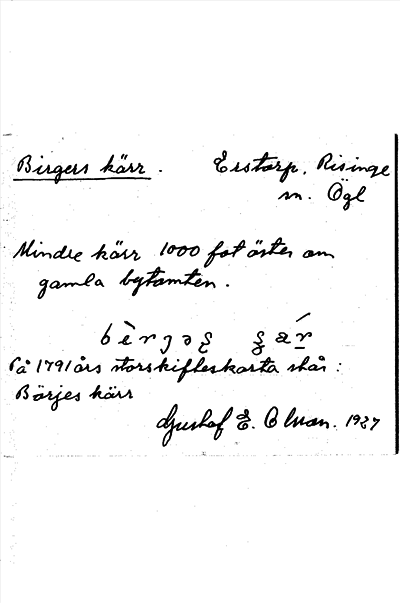 Birgers kärr. Erstorp, Risinge
sn. Ögl
Mindre kärr 1000 fot öster om
gamla bytomten.
På 1791 års storskifteskarta står:
Börjes kärr
Gustaf E. Olsson. 1927